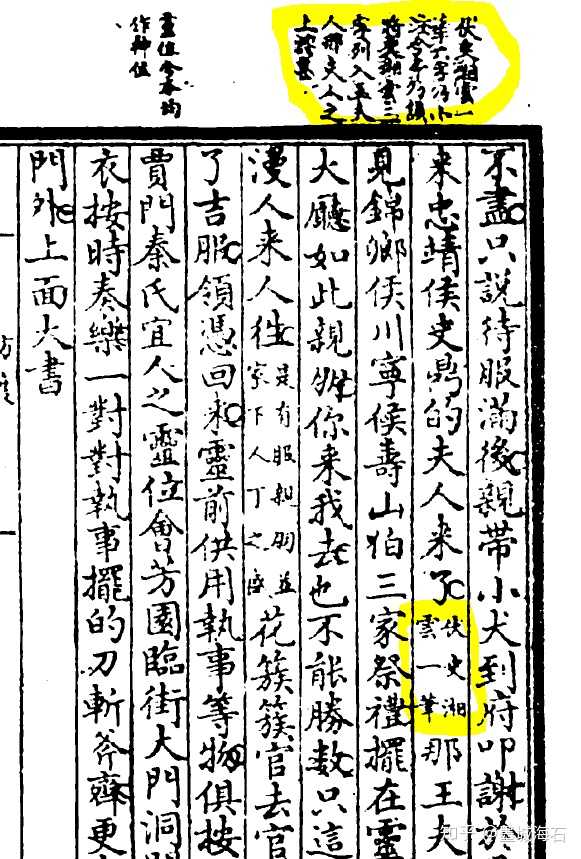 伏史湘雲一
筆六字乃小
注今本均誤
將史湘雲三
字列入王夫
人邢夫人之
上謬甚
靈位今本均
作神位
不盡只說待服滿後親帶小犬到府叩謝於
來忠靖侯史鼎的夫人來了伏史湘雲一筆那王夫
見錦鄉侯川寧侯壽山伯三家祭禮擺在靈
大廳如此親朋你來我去也不能勝數只這
漫人來人往是有服親朋並家下人丁之盛花簇簇官去官
了吉服領憑回來靈前供用執事等物俱按
賈門秦氏宜人之靈位會芳園臨街大門洞
衣按時奏樂一對對執事擺的刀斬斧齊更
門外上面大書
知乎 @臺城海石